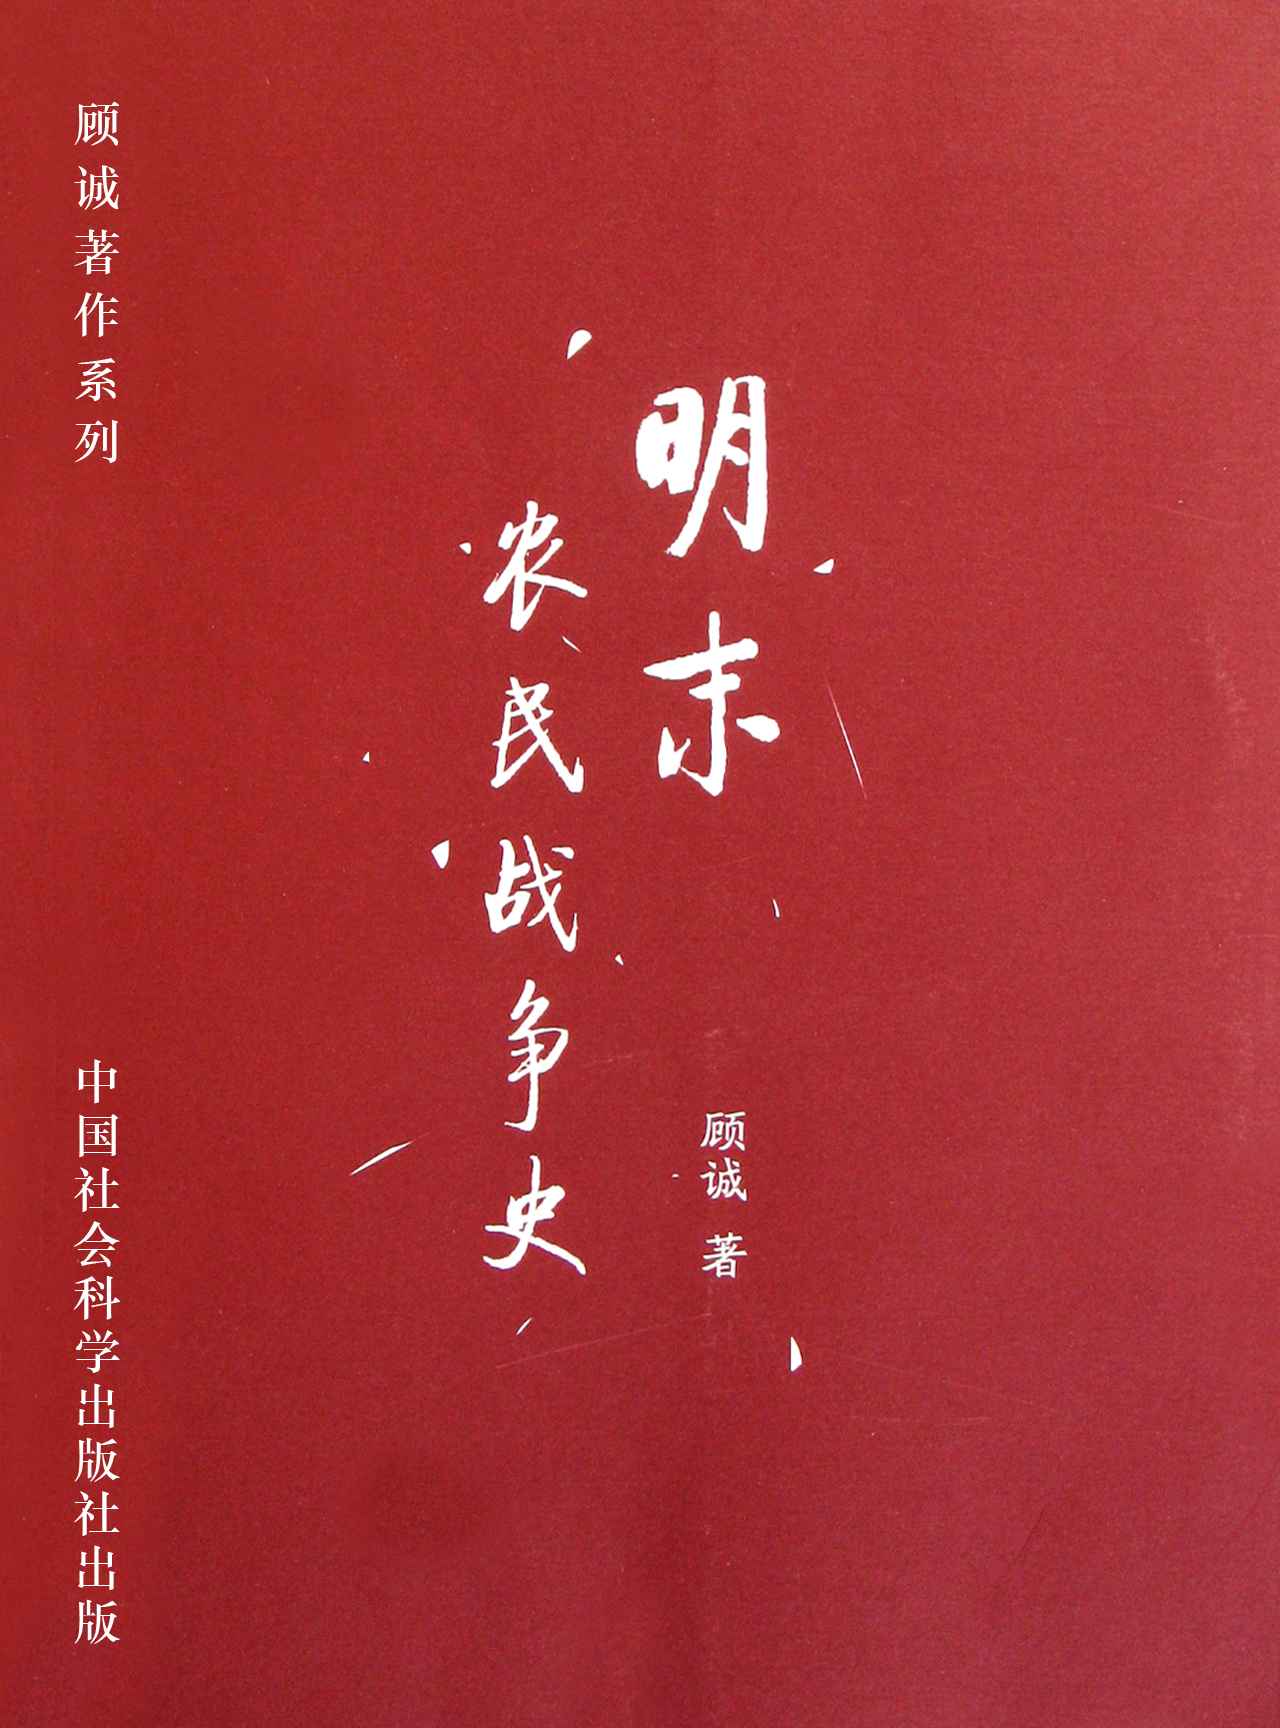 顾诚著作系列
明末
农民战争史
顾诚 著
中国社会科学出版社出版